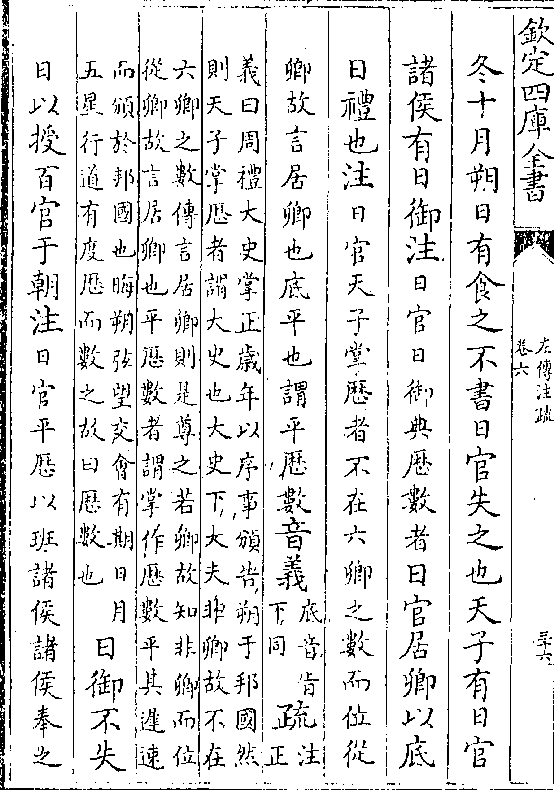 欽定四庫全書
左傳注疏
卷六
三十六
冬十月朔日有食之不書日官失之也天子有日官
諸侯有日御注日官日御典厯數者日官居卿以底
日禮也注日官天子掌厯者不在六卿之數而位從
卿故言居卿也底平也謂平厯數音義底音㫖下同疏注正
義曰周禮大史掌正歲年以序事頒告朔于邦國然
則天子掌厯者謂大史也大史下大夫非卿故不在
六卿之數傳言居卿則是尊之若卿故知非卿而位
從卿故言居卿也平厯數者謂掌作厯數平其遲速
而頒於邦國也晦朔弦望交會有期日月
五星行道有度厯而數之故曰厯數也日御不失
日以授百官于朝注日官平厯以班諸侯諸侯奉之